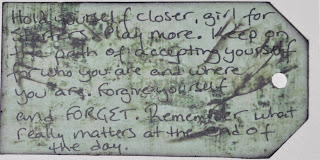 Hold yourself closer, girl for
starters. Play more. Keep on
the path of accepting yourself
for who you are and where
you are. Forgive yourself
and FORGET. Remember what
really matters at the end of
the day.